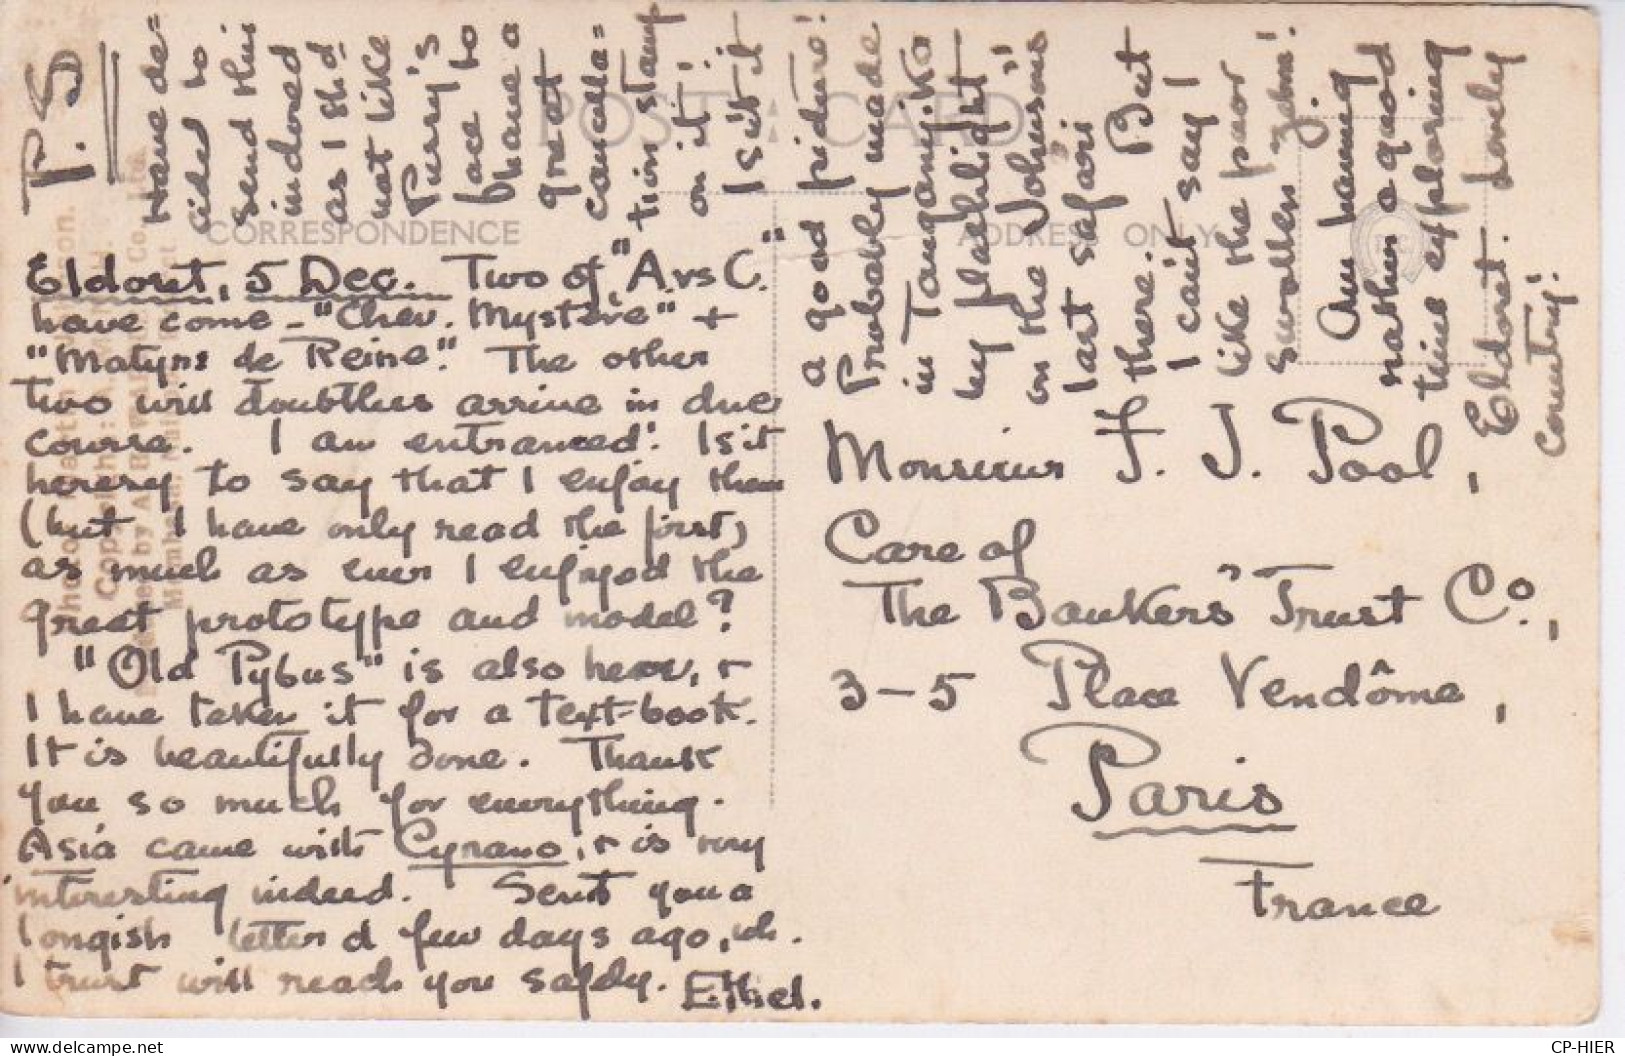 POST CARD
CORRESPONDENCE
ADDRESS ONLY
Eldoret, 5 Dec. Two of "A. vs C."
have come - "Chev. Mystère" +
"Matyrs de Reine". The other
two will doubtless arrive in due
course. I am entranced! Is it
heresy to say that I enjoy them
(but I have only read the first)
as much as ever I enjoyed the
great prototype and model?
"Old Pybus" is also here, +
I have taken it for a text-book.
It is beautifully done. Thank
you so much for everything.
Asia came with Cyrano, + is very
interesting indeed. Sent you a
longish letter a few days ago, wh.
I trust will reach you safely. Ethel.
P.S
Have de=
cided to
send this
indored
as I shd
not like
Pussy's
face to
have a
great
cancella=
tion stamp
on it!
Isn't it
a good picture!
Probably made
in Tanganyika
by flashlight
on the Johnsons'
last safari
there. But
I can't say I
like the poor
swollen zebra!
Am having
rather a good
time exploring
Eldoret. Lovely
country!
Monsieur F. J. Pool,
Care of
The Bankers' Trust Co.,
3-5 Place Vendôme,
Paris
France
CP-HIER